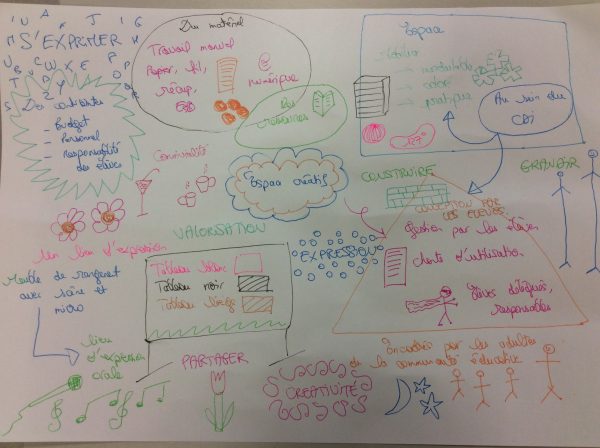 S'EXPRIMER
Du matériel
Travail manuel
Papier, fil,
récup,
numérique
Des
ressources
Espace
Mobilier
→ modulable
→ coloré
→ pratique
Au sein du
CDI
Des contraintes
- Budget
- Personnel
- Responsabilité
des élèves
Convivialité
Espace créatif
CONSTRUIRE
GRANDIR
VALORISATION
EXPRESSION
UTILISATION PAR
LES ELEVES
Gestion par les élèves
charte d'utilisation
élèves délégués,
responsables
Un lieu d'expression
Meuble de rangement
avec scène et
micro
Tableau blanc
Tableau noir
Tableau liège
lieu
d'expression
orale
PARTAGER
CREATIVITÉ
Encadrés par les adultes
de la communauté éducative